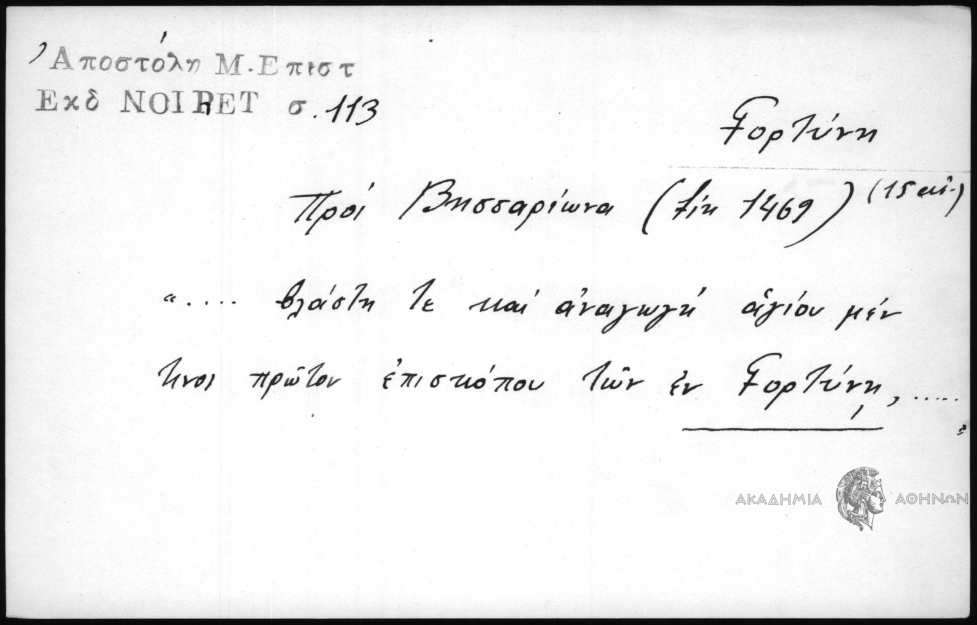 Ἀποστόλη Μ. Επιστ
Εκδ NOIRET σ. 113
Γορτύνη
Πρὸς Βησσαρίωνα (1469) (15 αἰ.)
"..... βλάστη τε καὶ ἀναγωγὴ ἁγίου μέν
τινος πρῶτον ἐπισκόπου τῶν ἐν Γορτύνῃ, ....."
ΑΚΑΔΗΜΙΑ ΑΘΗΝΩΝ